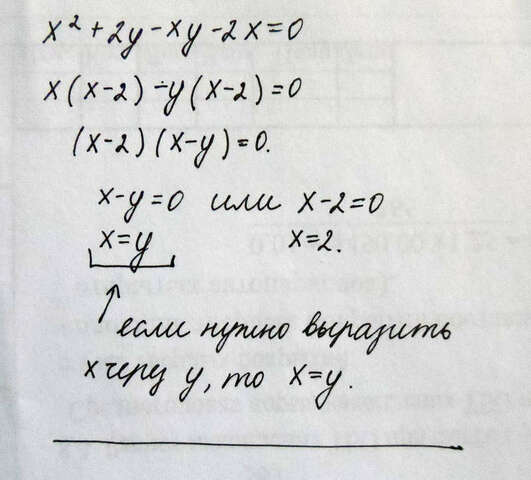 x² + 2y - xy - 2x = 0
x(x-2) - y(x-2) = 0
(x-2)(x-y) = 0.
x-y=0 или x-2=0
x=y x=2.
если нужно выразить
x через y, то x=y.